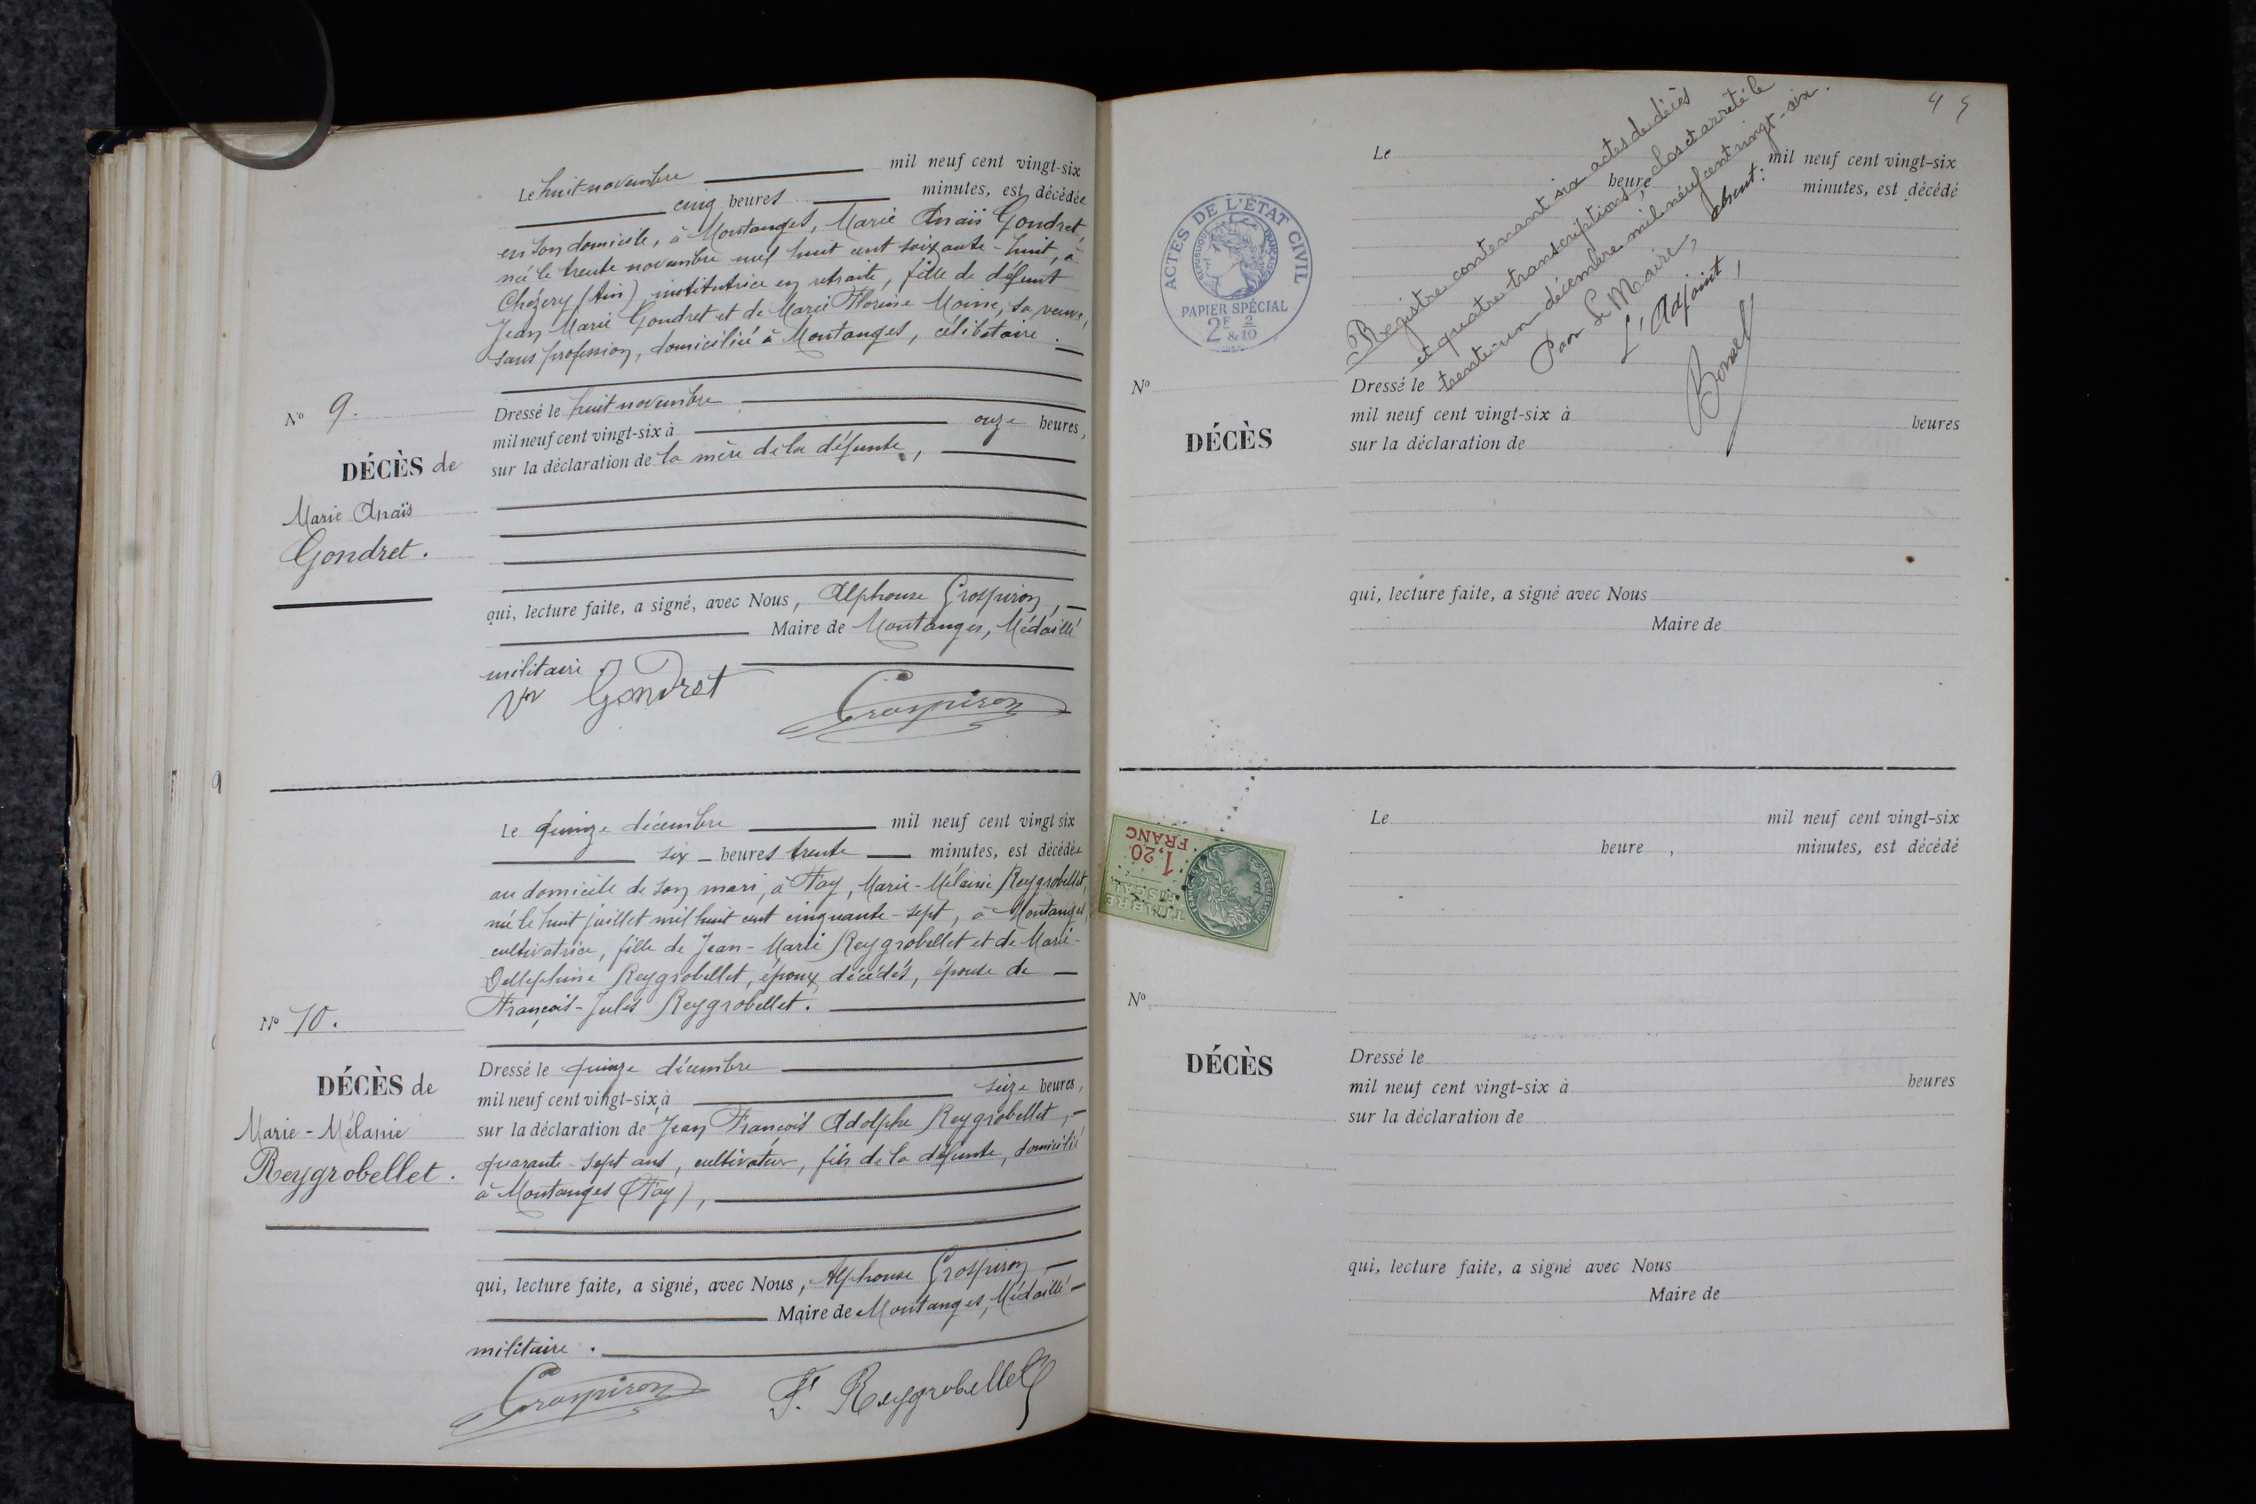 Le huit novembre mil neuf cent vingt-six
cinq heures minutes, est décédée
en son domicile, à Montanges, Marie Anaïs Gondret,
née le trente novembre mil huit cent soixante-huit, à
Chézery (Ain), institutrice en retraite, fille de défunt
Jean Marie Gondret et de Marie Florine Moine, sa veuve,
sans profession, domiciliée à Montanges, célibataire.
No 9.
DÉCÈS de
Marie Anaïs
Gondret.
Dressé le huit novembre
mil neuf cent vingt-six à onze heures,
sur la déclaration de la mère de la défunte,
qui, lecture faite, a signé, avec Nous, Alphonse Grospiron,
Maire de Montanges, Médaillé
militaire
Vve Gondret
Grospiron
Le quinze décembre mil neuf cent vingt six
six heures trente minutes, est décédée
au domicile de son mari, à Fay, Marie-Mélanie Reygrobellet,
née le huit juillet mil huit cent cinquante-sept, à Montanges,
cultivatrice, fille de Jean-Marie Reygrobellet et de Marie-
Delléphine Reygrobellet, époux décédés, épouse de
François-Jules Reygrobellet.
No 10.
DÉCÈS de
Marie-Mélanie
Reygrobellet.
Dressé le quinze décembre
mil neuf cent vingt-six à seize heures,
sur la déclaration de Jean François Adolphe Reygrobellet,
quarante-sept ans, cultivateur, fils de la défunte, domicilié
à Montanges (Fay),
qui, lecture faite, a signé, avec Nous, Alphonse Grospiron,
Maire de Montanges, Médaillé
militaire.
Grospiron
F. Reygrobellet
45
Registre contenant six actes de décès
et quatre transcriptions, clos et arrêté le
trente-un décembre mil neuf cent vingt-six.
Pour le Maire, absent:
L'Adjoint,
ACTES DE L'ÉTAT CIVIL
RÉPUBLIQUE FRANÇAISE
PAPIER SPÉCIAL
2F & 2/10
Le mil neuf cent vingt-six
heure minutes, est décédé
No
DÉCÈS
Dressé le
mil neuf cent vingt-six à heures
sur la déclaration de
qui, lecture faite, a signé avec Nous
Maire de
TIMBRE
FISCAL
1,20
FRANC
Le mil neuf cent vingt-six
heure , minutes, est décédé
No
DÉCÈS
Dressé le
mil neuf cent vingt-six à heures
sur la déclaration de
qui, lecture faite, a signé avec Nous
Maire de